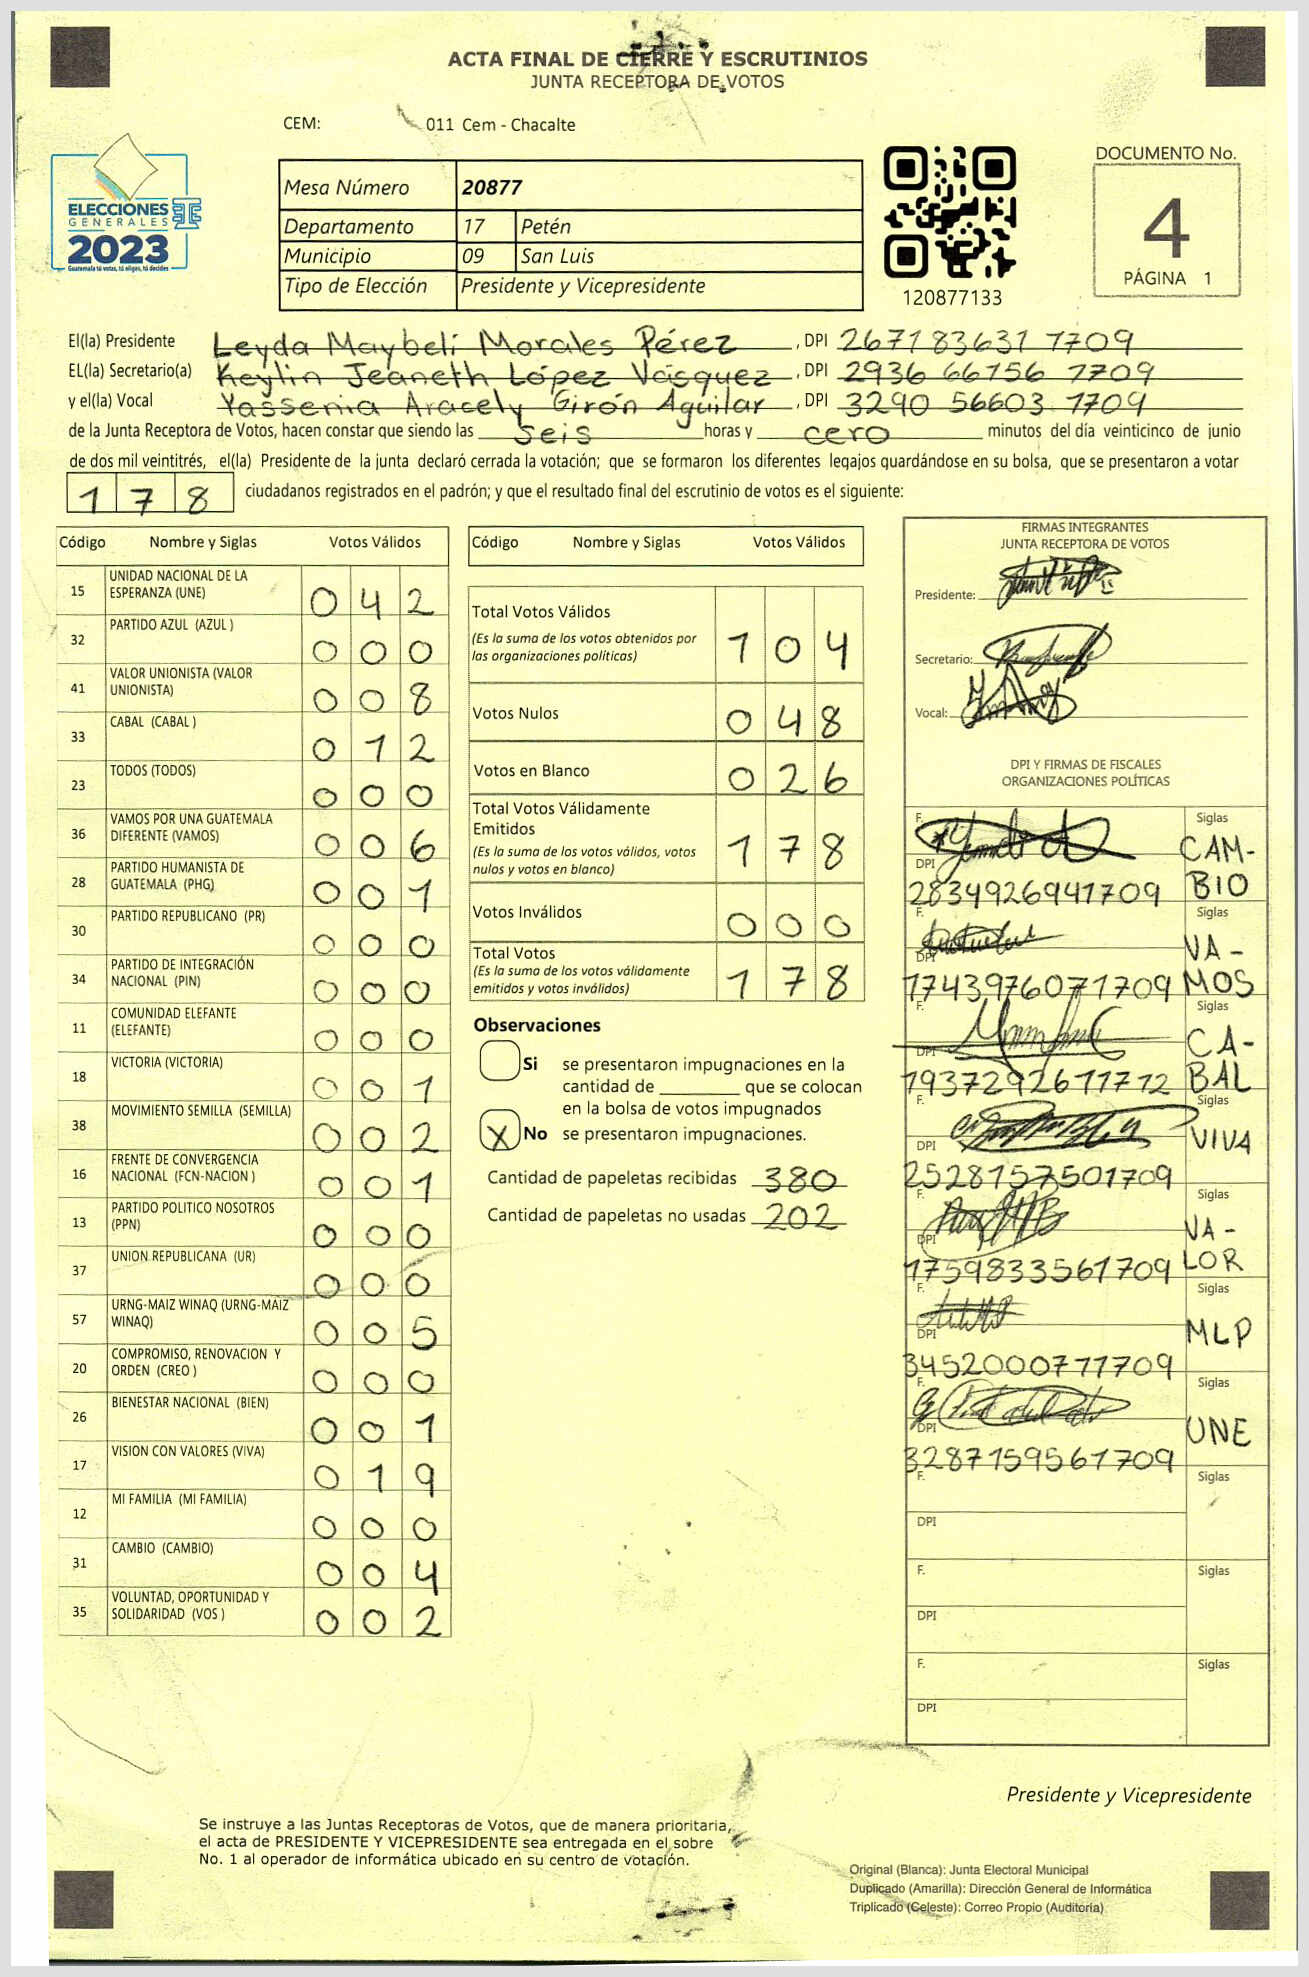 ACTA FINAL DE CIERRE Y ESCRUTINIOS
JUNTA RECEPTORA DE VOTOS
CEM: 011 Cem - Chacalte
ELECCIONES
GENERALES
2023
Guatemala tú votas, tú eliges, tú decides
Mesa Número 20877
Departamento 17 Petén
Municipio 09 San Luis
Tipo de Elección Presidente y Vicepresidente
120877133
DOCUMENTO No.
4
PÁGINA 1
El(la) Presidente Leyda Maybeli Morales Pérez, DPI 267183631 1709
EL(la) Secretario(a) Keylin Jeaneth López Vásquez, DPI 2936 66756 1709
y el(la) Vocal Yassenia Aracely Girón Aguilar, DPI 3290 56603 1709
de la Junta Receptora de Votos, hacen constar que siendo las seis horas y cero minutos del día veinticinco de junio
de dos mil veintitrés, el(la) Presidente de la junta declaró cerrada la votación; que se formaron los diferentes legajos quardándose en su bolsa, que se presentaron a votar
178 ciudadanos registrados en el padrón; y que el resultado final del escrutinio de votos es el siguiente:
Código Nombre y Siglas Votos Válidos
15 UNIDAD NACIONAL DE LA ESPERANZA (UNE) 042
32 PARTIDO AZUL (AZUL ) 000
41 VALOR UNIONISTA (VALOR UNIONISTA) 008
33 CABAL (CABAL ) 012
23 TODOS (TODOS) 000
36 VAMOS POR UNA GUATEMALA DIFERENTE (VAMOS) 006
28 PARTIDO HUMANISTA DE GUATEMALA (PHG) 001
30 PARTIDO REPUBLICANO (PR) 000
34 PARTIDO DE INTEGRACIÓN NACIONAL (PIN) 000
11 COMUNIDAD ELEFANTE (ELEFANTE) 000
18 VICTORIA (VICTORIA) 001
38 MOVIMIENTO SEMILLA (SEMILLA) 002
16 FRENTE DE CONVERGENCIA NACIONAL (FCN-NACION ) 001
13 PARTIDO POLITICO NOSOTROS (PPN) 000
37 UNION REPUBLICANA (UR) 000
57 URNG-MAIZ WINAQ (URNG-MAIZ WINAQ) 005
20 COMPROMISO, RENOVACION Y ORDEN (CREO ) 000
26 BIENESTAR NACIONAL (BIEN) 001
17 VISION CON VALORES (VIVA) 019
12 MI FAMILIA (MI FAMILIA) 000
31 CAMBIO (CAMBIO) 004
35 VOLUNTAD, OPORTUNIDAD Y SOLIDARIDAD (VOS ) 002
Código Nombre y Siglas Votos Válidos
Total Votos Válidos 104
(Es la suma de los votos obtenidos por
las organizaciones políticas)
Votos Nulos 048
Votos en Blanco 026
Total Votos Válidamente
Emitidos 178
(Es la suma de los votos válidos, votos
nulos y votos en blanco)
Votos Inválidos 000
Total Votos 178
(Es la suma de los votos válidamente
emitidos y votos inválidos)
Observaciones
Si se presentaron impugnaciones en la
cantidad de ________ que se colocan
en la bolsa de votos impugnados
X No se presentaron impugnaciones.
Cantidad de papeletas recibidas 380
Cantidad de papeletas no usadas 202
FIRMAS INTEGRANTES
JUNTA RECEPTORA DE VOTOS
Presidente:
Secretario:
Vocal:
DPI Y FIRMAS DE FISCALES
ORGANIZACIONES POLÍTICAS
F. Siglas CAM-
DPI 2834926941709 BIO
F. Siglas VA-
DPI 1743976071709 MOS
F. Siglas CA-
DPI 1937292611712 BAL
F. Siglas VIVA
DPI 2528157501709
F. Siglas VA-
DPI 1759833561709 LOR
F. Siglas MLP
DPI 3452000771709
F. Siglas UNE
DPI 3287159561709
F. Siglas
DPI
F. Siglas
DPI
F. Siglas
DPI
Presidente y Vicepresidente
Se instruye a las Juntas Receptoras de Votos, que de manera prioritaria,
el acta de PRESIDENTE Y VICEPRESIDENTE sea entregada en el sobre
No. 1 al operador de informática ubicado en su centro de votación.
Original (Blanca): Junta Electoral Municipal
Duplicado (Amarilla): Dirección General de Informática
Triplicado (Celeste): Correo Propio (Auditoría)